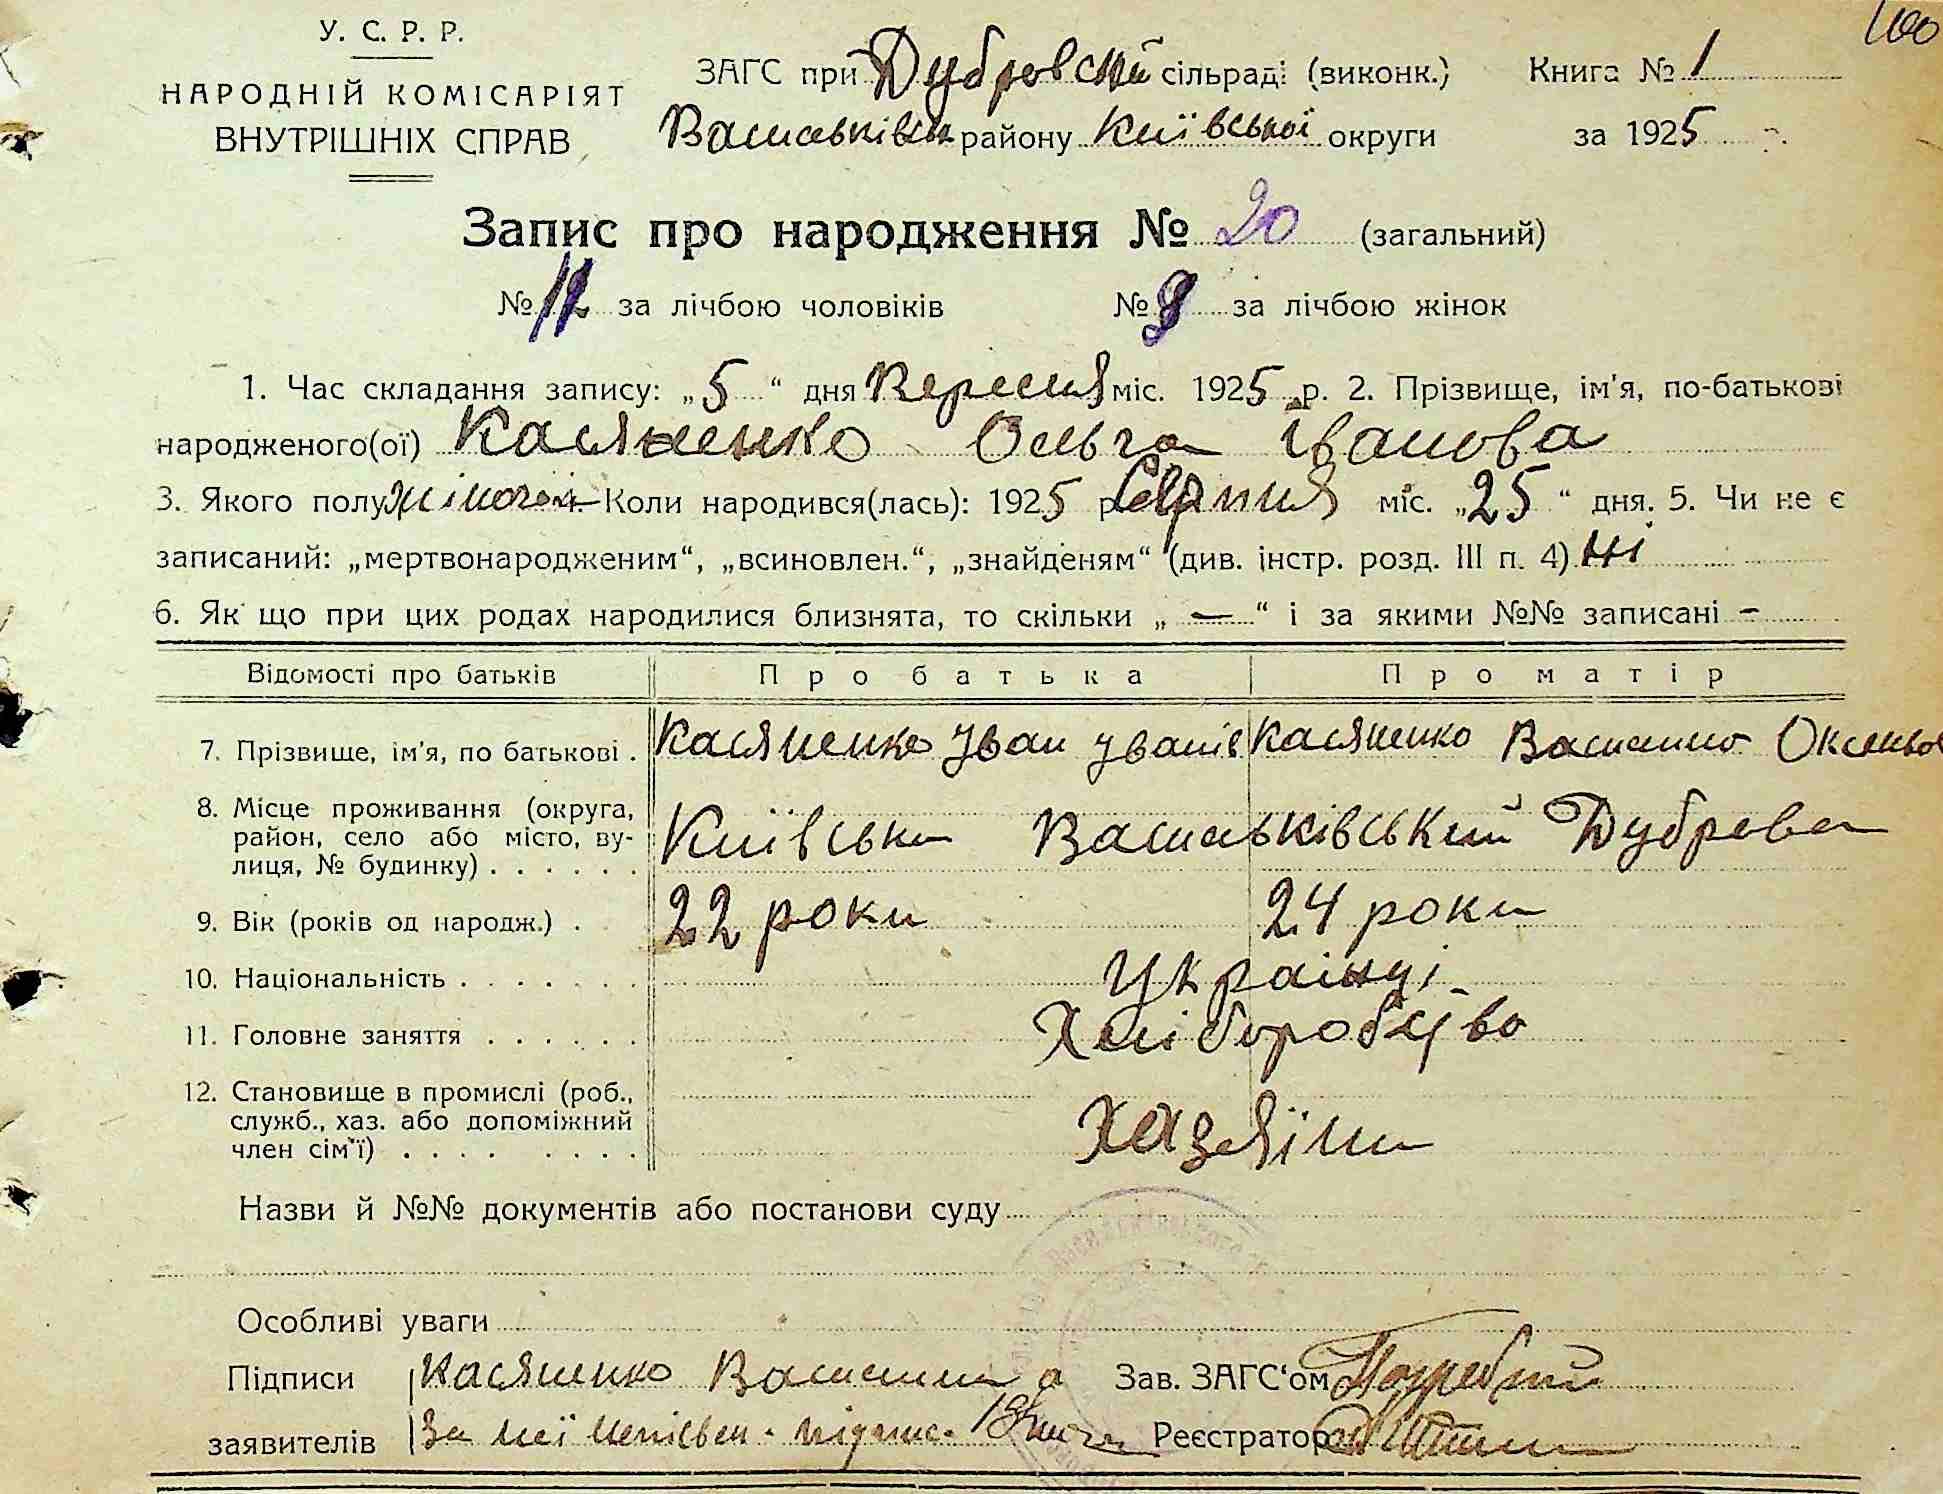 100
У. С. Р. Р.
НАРОДНІЙ КОМІСАРІЯТ
ВНУТРІШНІХ СПРАВ
ЗАГС при Дубровській сільраді (виконк.) Книга № 1
Васильківськ району Київської округи за 1925
Запис про народження № 20 (загальний)
№ 12 за лічбою чоловіків № 8 за лічбою жінок
1. Час складання запису: „5“ дня Вересня міс. 1925 р. 2. Прізвище, ім'я, по-батькові
народженого(ої) Касяненко Ольга Іванова
3. Якого полу жіночой 4. Коли народився(лась): 1925 р. Серпня міс. „25“ дня. 5. Чи не є
записаний: „мертвонародженим“, „всиновлен.“, „знайденям“ (див. інстр. розд. III п. 4) ні
6. Як що при цих родах народилися близнята, то скільки „ — “ і за якими №№ записані -
Відомості про батьків Про батька Про матір
7. Прізвище, ім'я, по батькові . Касяненко Уван Уванів Касяненко Василина Оксеньов
8. Місце проживання (округа,
район, село або місто, ву-
лиця, № будинку) . . . . . . Київська Васильківський Дуброва
9. Вік (років од народж.) . 22 роки 24 роки
10. Національність . . . . . . . Українці
11. Головне заняття . . . . . . Хліборобство
12. Становище в промислі (роб.,
служб., хаз. або допоміжний
член сім'ї) . . . . . . . . Хазяїни
Назви й №№ документів або постанови суду
Особливі уваги
Підписи Касяненко Василина Зав. ЗАГС'ом
заявителів За неї неписьмен. підпис. Реєстратор